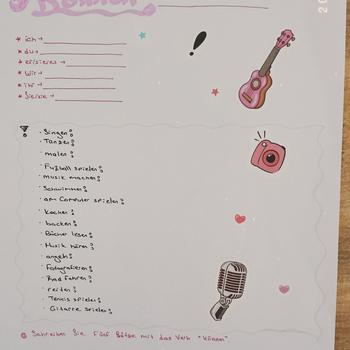 Können
* ich →
* du →
* er/sie/es →
* Wir →
* ihr →
* Sie/sie →
· Singen :
· Tanzen :
· malen :
· Fußball spielen :
· musik machen :
· Schwimmen :
· am Computer spielen :
· kochen :
· backen :
· Bücher lesen :
· Musik hören :
· angeln :
· Fotografieren :
· Rad fahren :
· reiten :
· Tennis spielen :
· Gitarre spielen :
Schreiben Sie Fünf Sätze mit das Verb "können"